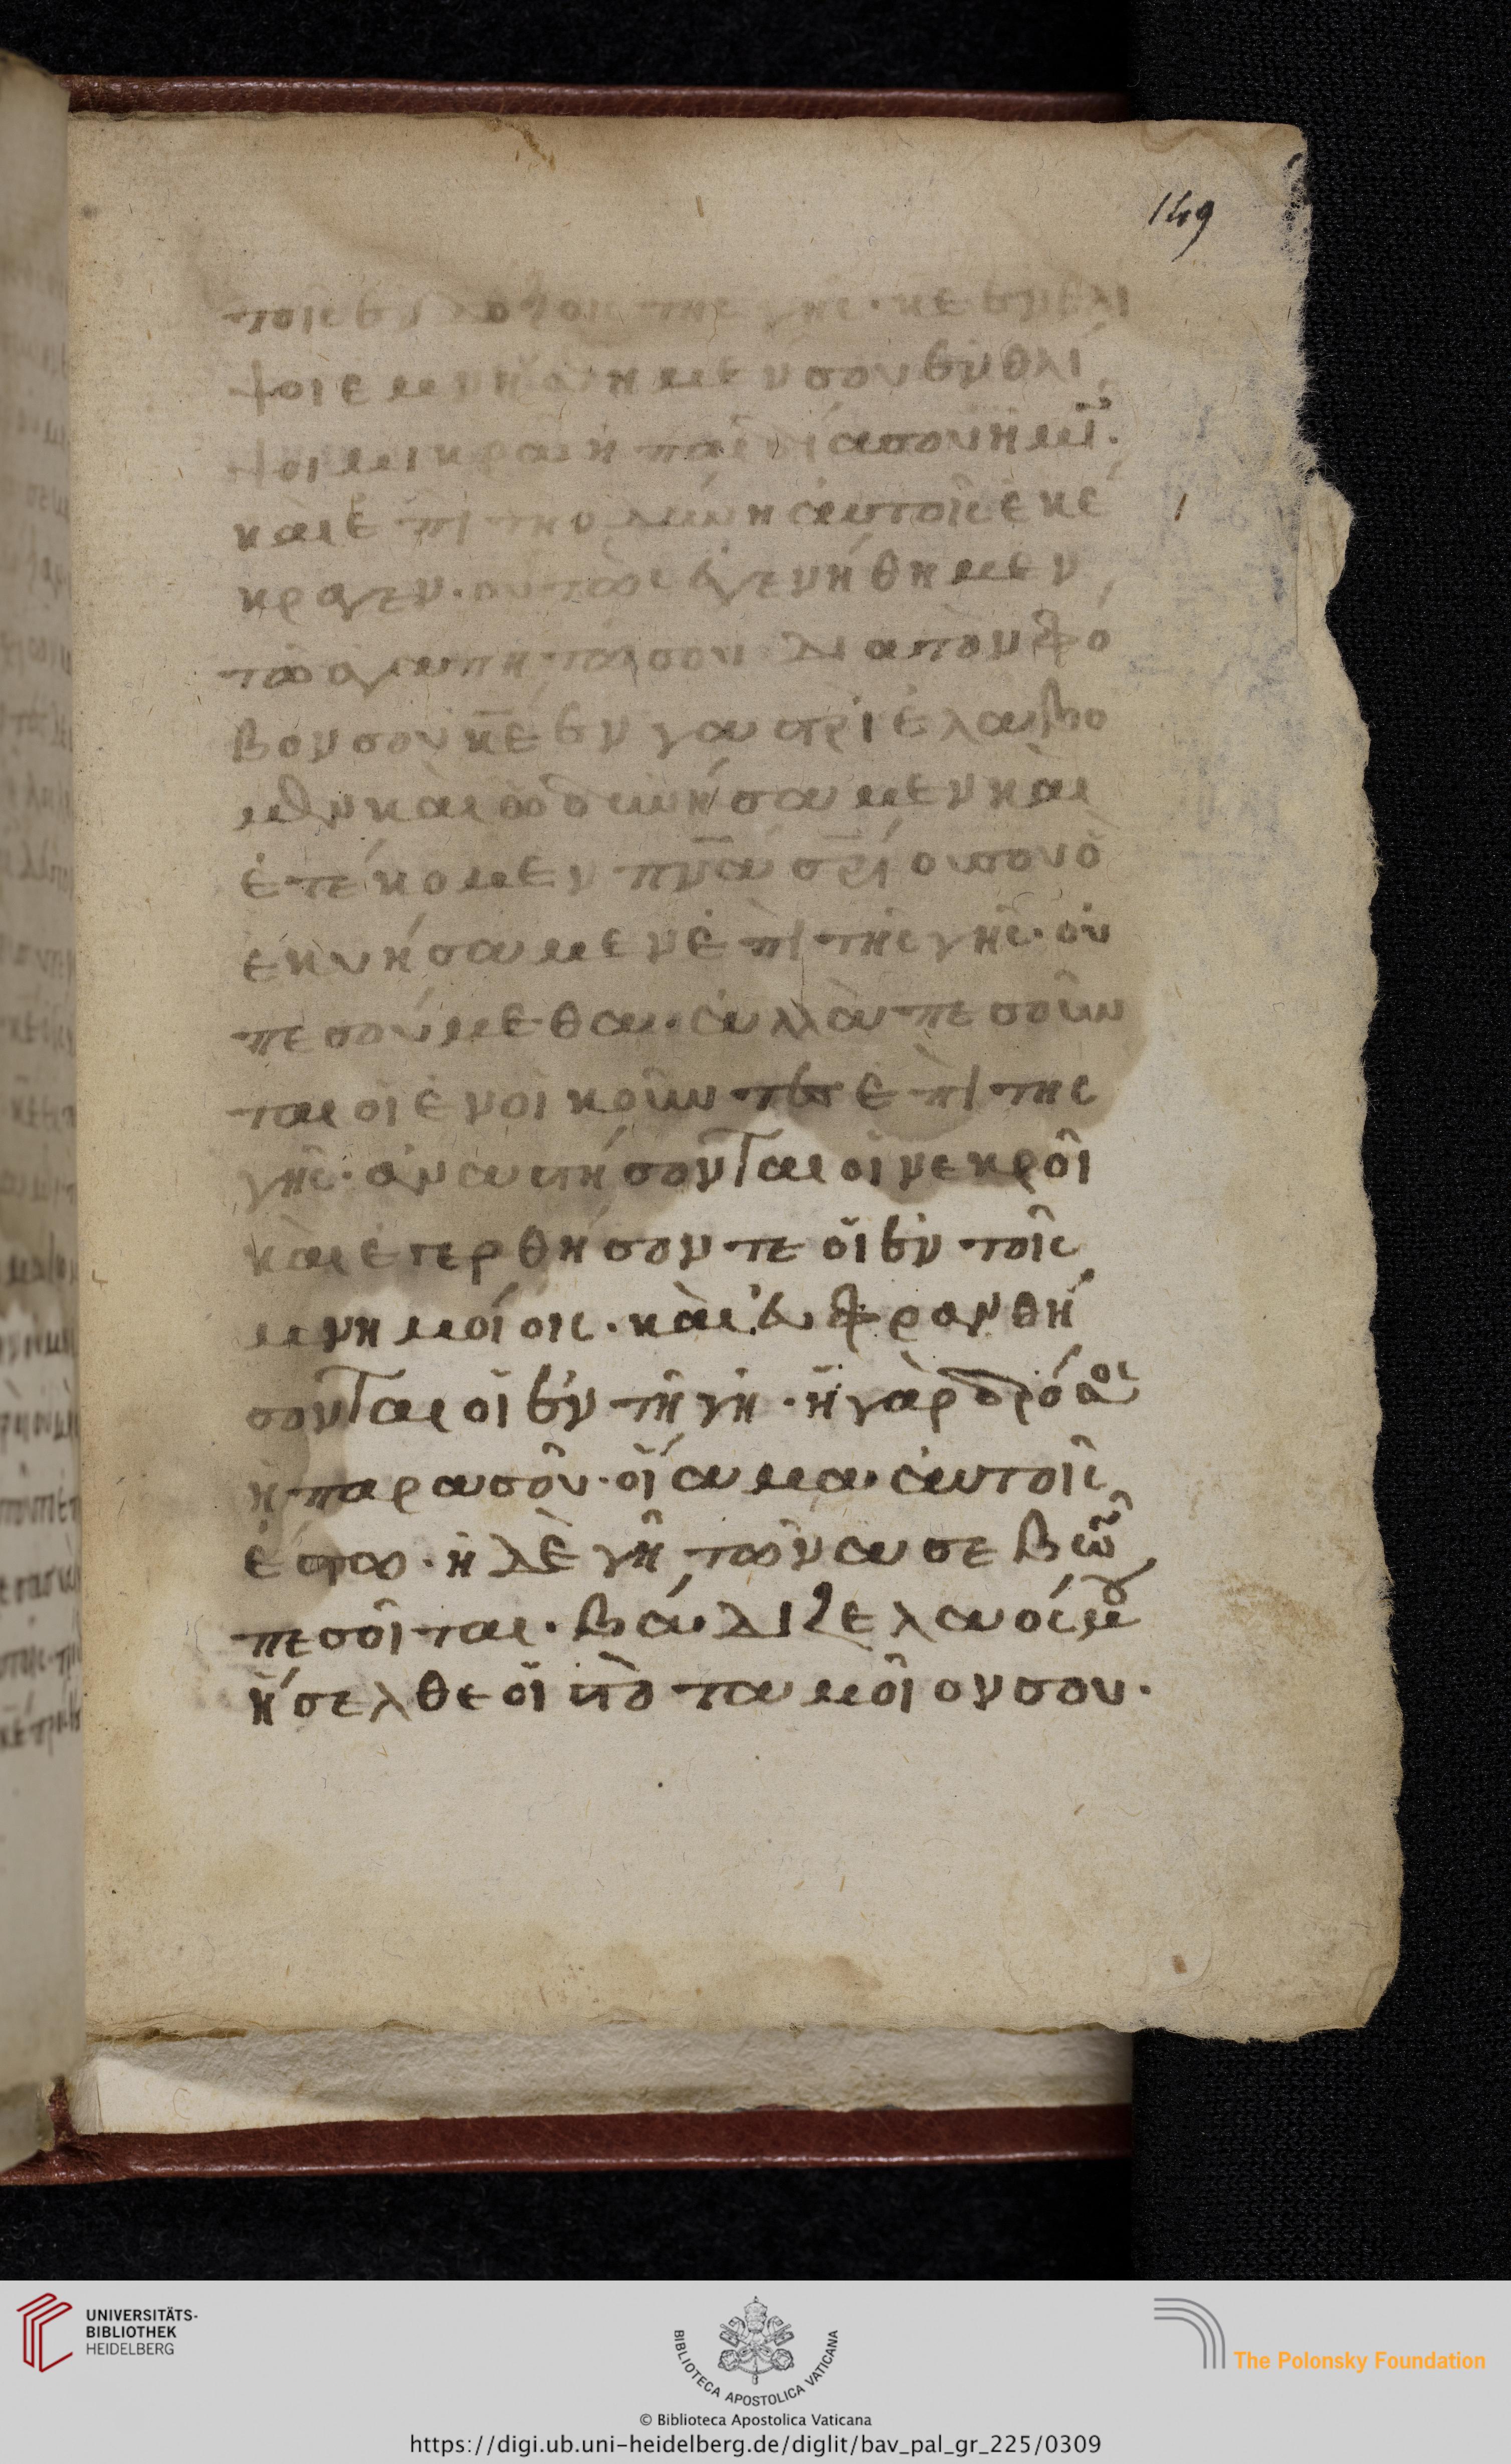 149
τοις ενδοξοις της γης · κε εν θλι
ψοι εμνήσθημεν σου εν θλί
ψοι μικρα η παιδία σου ημῖ.
καὶ ἐπὶ την ὀδύνη ἀυτοῖς ἐκέ
κραγεν · ουτως ἐγενήθημεν
τῶ ἀγαπητῶ σου δια τὸν φό
βον σου κε̅ ἐν γαστρὶ ἐλάβο
μεν καὶ ὠδινήσαμεν καὶ
ἐτέκομεν πν̅α σρ̅ίο σου ὃ
εκυήσαμεν ἐπὶ τῆς γῆς · ου
πεσούμεθα · ἀλλὰ πεσοῦν
ται οἱ ἐνοικοῦντες ἐπὶ της
γῆς · ἀναστήσονται οἱ νεκροῖ
καὶ ἐγερθήσοντε οἱ ἐν τοῖς
μνημοίοις · καὶ ἐυφρανθή
σονται οἱ ἐν τῆ γῆ · ἡ γὰρ δρόσος
ἡ παρα σοῦ · οἵαμα ἀυτοῖς
ἐστω · ἡ δὲ γῆ τῶν ασεβῶ
πεσοῖται · βάδιζε λαοί μου
ἤσελθε οἰς τὸ ταμοῖον σου ·
UNIVERSITÄTS-
BIBLIOTHEK
HEIDELBERG
BIBLIOTECA APOSTOLICA VATICANA
The Polonsky Foundation
© Biblioteca Apostolica Vaticana
https://digi.ub.uni-heidelberg.de/diglit/bav_pal_gr_225/0309